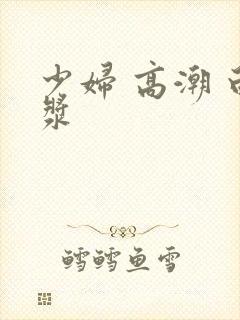 少婦 高潮 白
漿
鱈鱈鱼雪